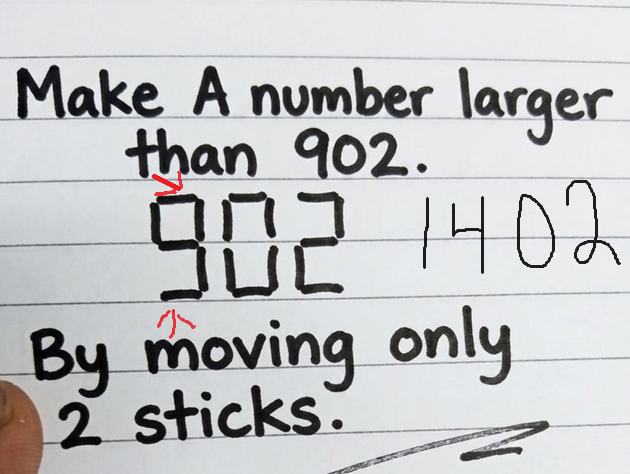 Make A number larger
than 902.
902 1402
By moving only
2 sticks.